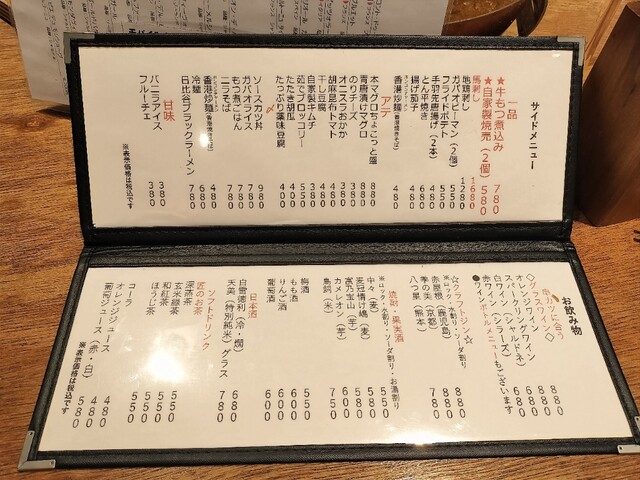 サイドメニュー
一品
★牛もつ煮込み 780
★自家製焼売(2個) 580
馬刺し 1680
地鶏刺し 1280
ガパオピーマン(2個) 550
フライドポテト 550
手羽先唐揚げ(2本) 550
とん平焼き 680
揚げ茄子 480
香港炒麺(香港焼きそば) 480
アテ
本マグロちょこっと盛 880
青唐漬けマグロ 880
のりチーズ 380
オニスラおかか 380
胡麻昆布トマト 380
干し豆腐 480
自家製キムチ 380
茹でブロッコリー 550
たたき胡瓜 400
たっぷり薬味豆腐 400
〆
ソースカツ丼 980
ガパオライス 780
もつ煮ごはん 780
ニラそば 780
香港炒麺(香港焼きそば) 480
冷麺 680
日比谷ブラックラーメン 780
甘味
バニラアイス 380
フルーチェ 380
※表示価格は税込です
お飲み物
串カツに合う
◇グラスワイン◇
オレンジワイン 880
スパークリングワイン 880
白ワイン(シャルドネ) 680
赤ワイン(シラーズ) 680
●ワインボトルメニューもございます
☆クラフトジン☆
※ロック・水割り・ソーダ割り
赤屋根(鹿児島) 880
季の美(京都) 880
八つ星(熊本) 780
焼酎・果実酒
※ロック・水割り・ソーダ割り・お湯割り
中々(麦) 550
麦冠情け嶋(麦) 580
富乃宝山(芋) 580
カメレオン(芋) 600
鳥飼(米) 750
梅酒 550
もも酒 600
りんご酒 600
葡萄酒 600
日本酒
白雪徳利(冷・燗) 680
天美(特別純米)グラス 780
ソフトドリンク
匠のお茶
深蒸茶 550
玄米緑茶 550
和紅茶 550
ほうじ茶 550
コーラ 480
オレンジジュース 480
葡萄ジュース(赤・白) 580
※表示価格は税込です